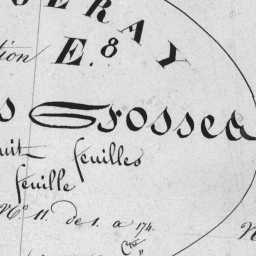 GERAY
tion E.8
s Grosses
uit feuilles
feuille
N° 11. de 1. a 174.